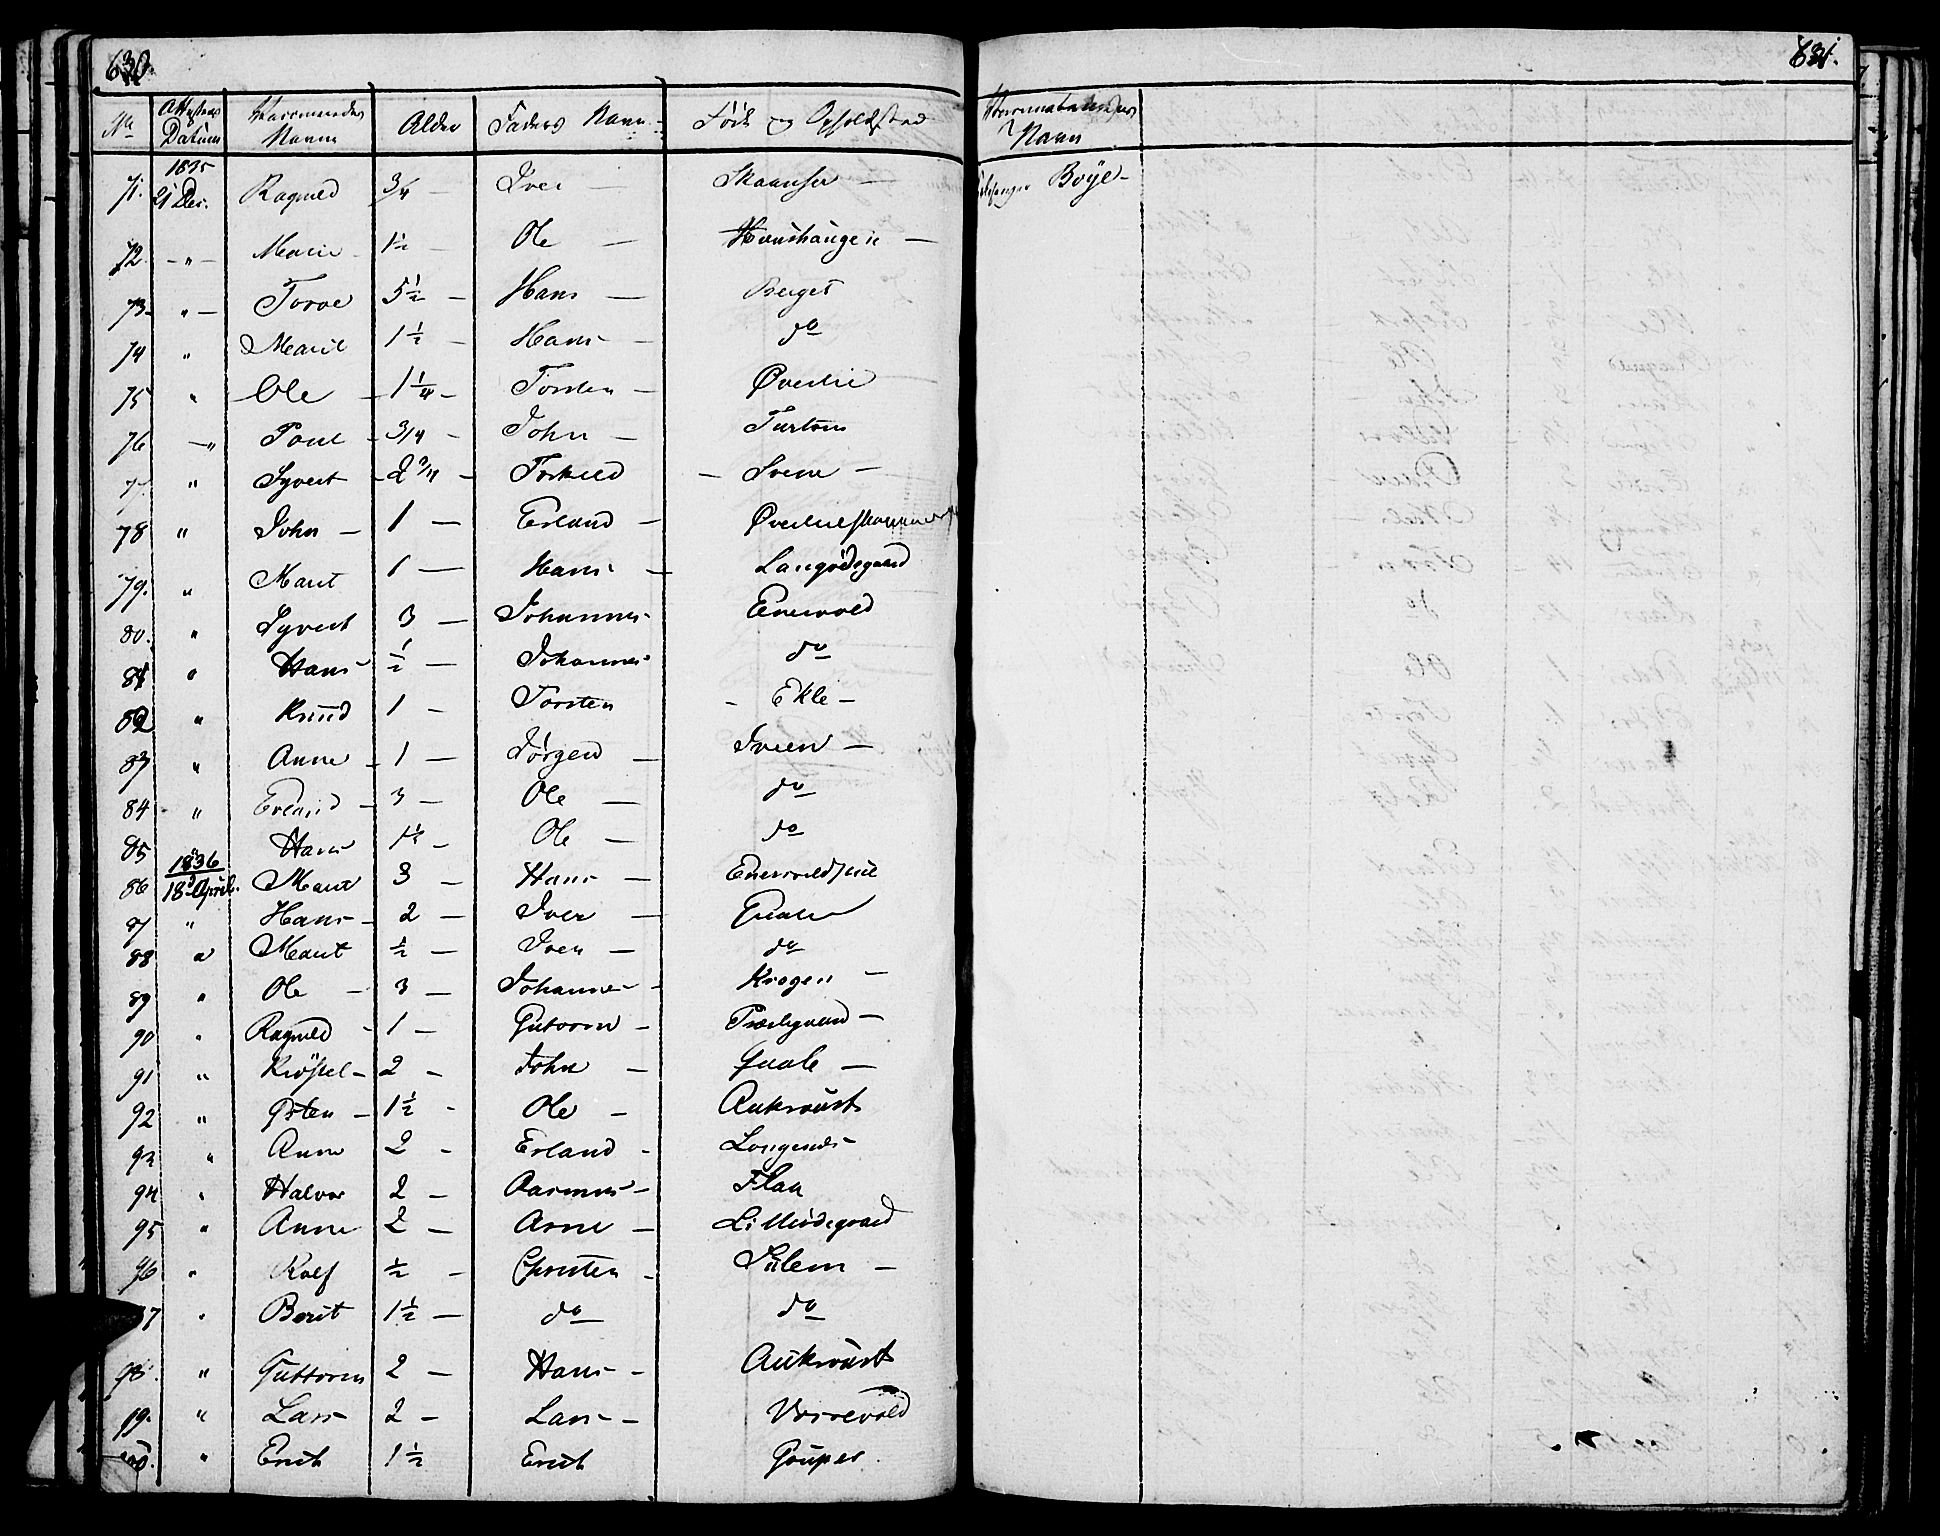 630.
631.
No Attestens Datum Navn Alder Faders Navn Føde og Opholdsstad Navn
1835
71. 21 Dec. Ragnild 3/4 - Iver - Skaanser - Boye -
72. - " - Marie - 1½ - Ole - Haushaugen -
73 - " - Toroe 5½ - Hans - Berget
74 " Marit 1½ - Hans - do
75 " Ole - 1¼ - Torsten - Øverlie
76 - " Poul - 3/4 - John - Turtom
77. " Syvert - 2 3/4 - Torkild - Sveen -
78 " John - 1 - Erland - Øverlie
79. " Marit 1 - Hans - Langødegaard
80. " Syvert 3 - Johannes - Enevold
81 " Hans - ½ - Johannes - do
82 " Knud 1 - Torsten - Ekle -
83 " Anne - 1 - Jørgen - Sveen -
84 - " Erland - 3 - Ole - do
85 " Hans 1½ - Ole - do
1836
86 18d April. Marit 3 - Hans - Enevold
87 " Hans - 2 - Iver - Quale
88 " Marit ½ - Iver - do
89 " Ole - 3 - Johannes - Krogen -
90 " Ragnild - 1 - Guttorm - Præstgaard -
91 " Kiøstel - 2 - John - Quale -
92 " Østen - 1½ - Ole - Aukrust
93 " Anne 2 - Erland - Longenæs
94 " Halvor 2 - Aasmus - Flaa
95 " Anne 2 - Arne - Lillødegaard
96 " Rolf ½ - Christen - Sulem -
97 " Berit 1½ - do do
98. " Guttorm 2 - Hans - Aukrust
99. " Lars 2 - Lars - Vorrevold
100. " Erich 1½ Erich Graupes